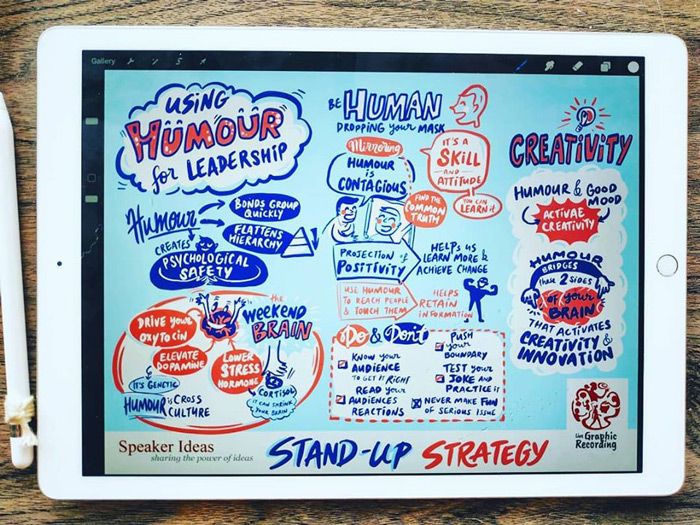 Gallery
S
USING
HUMOUR
for LEADERSHIP
Humour
BONDS GROUP
QUICKLY
FLATTENS
HIERARCHY
CREATES
PSYCHOLOGICAL
SAFETY
DRIVE your
OXYTOCIN
ELEVATE
DOPAMINE
IT'S GENETIC
HUMOUR is CROSS
CULTURE
the
WEEKEND
BRAIN
LOWER
STRESS
HORMONE
CORTISOL
IT CAN SHRINK
YOUR BRAIN
BE HUMAN
DROPPING your MASK
Mirroring
HUMOUR IS
CONTAGIOUS
IT'S A
SKILL
AND
ATTITUDE
YOU CAN
LEARN it
FIND THE
COMMON
TRUTH
PROJECTION of
POSITIVITY
HELPS US
LEARN MORE &
ACHIEVE CHANGE
USE HUMOUR
TO REACH PEOPLE
& TOUCH THEM
HELPS
RETAIN
INFORMATION
Do & Don't
KNOW your
AUDIENCE
TO GET iT RIGHT
READ your
AUDIENCES
REACTIONS
PUSH
your
BOUNDARY
TEST your
JOKE AND
PRACTICE it
NEVER MAKE FUN
OF SERIOUS ISSUE
CREATIVITY
HUMOUR & GOOD
MOOD
ACTIVAE
CREATIVITY
HUMOUR
BRIDGES
these 2 SIDES
of your
BRAIN
THAT ACTIVATES
CREATIVITY &
INNOVATION
Speaker Ideas
sharing the power of ideas
STAND-UP STRATEGY
Live Graphic
Recording